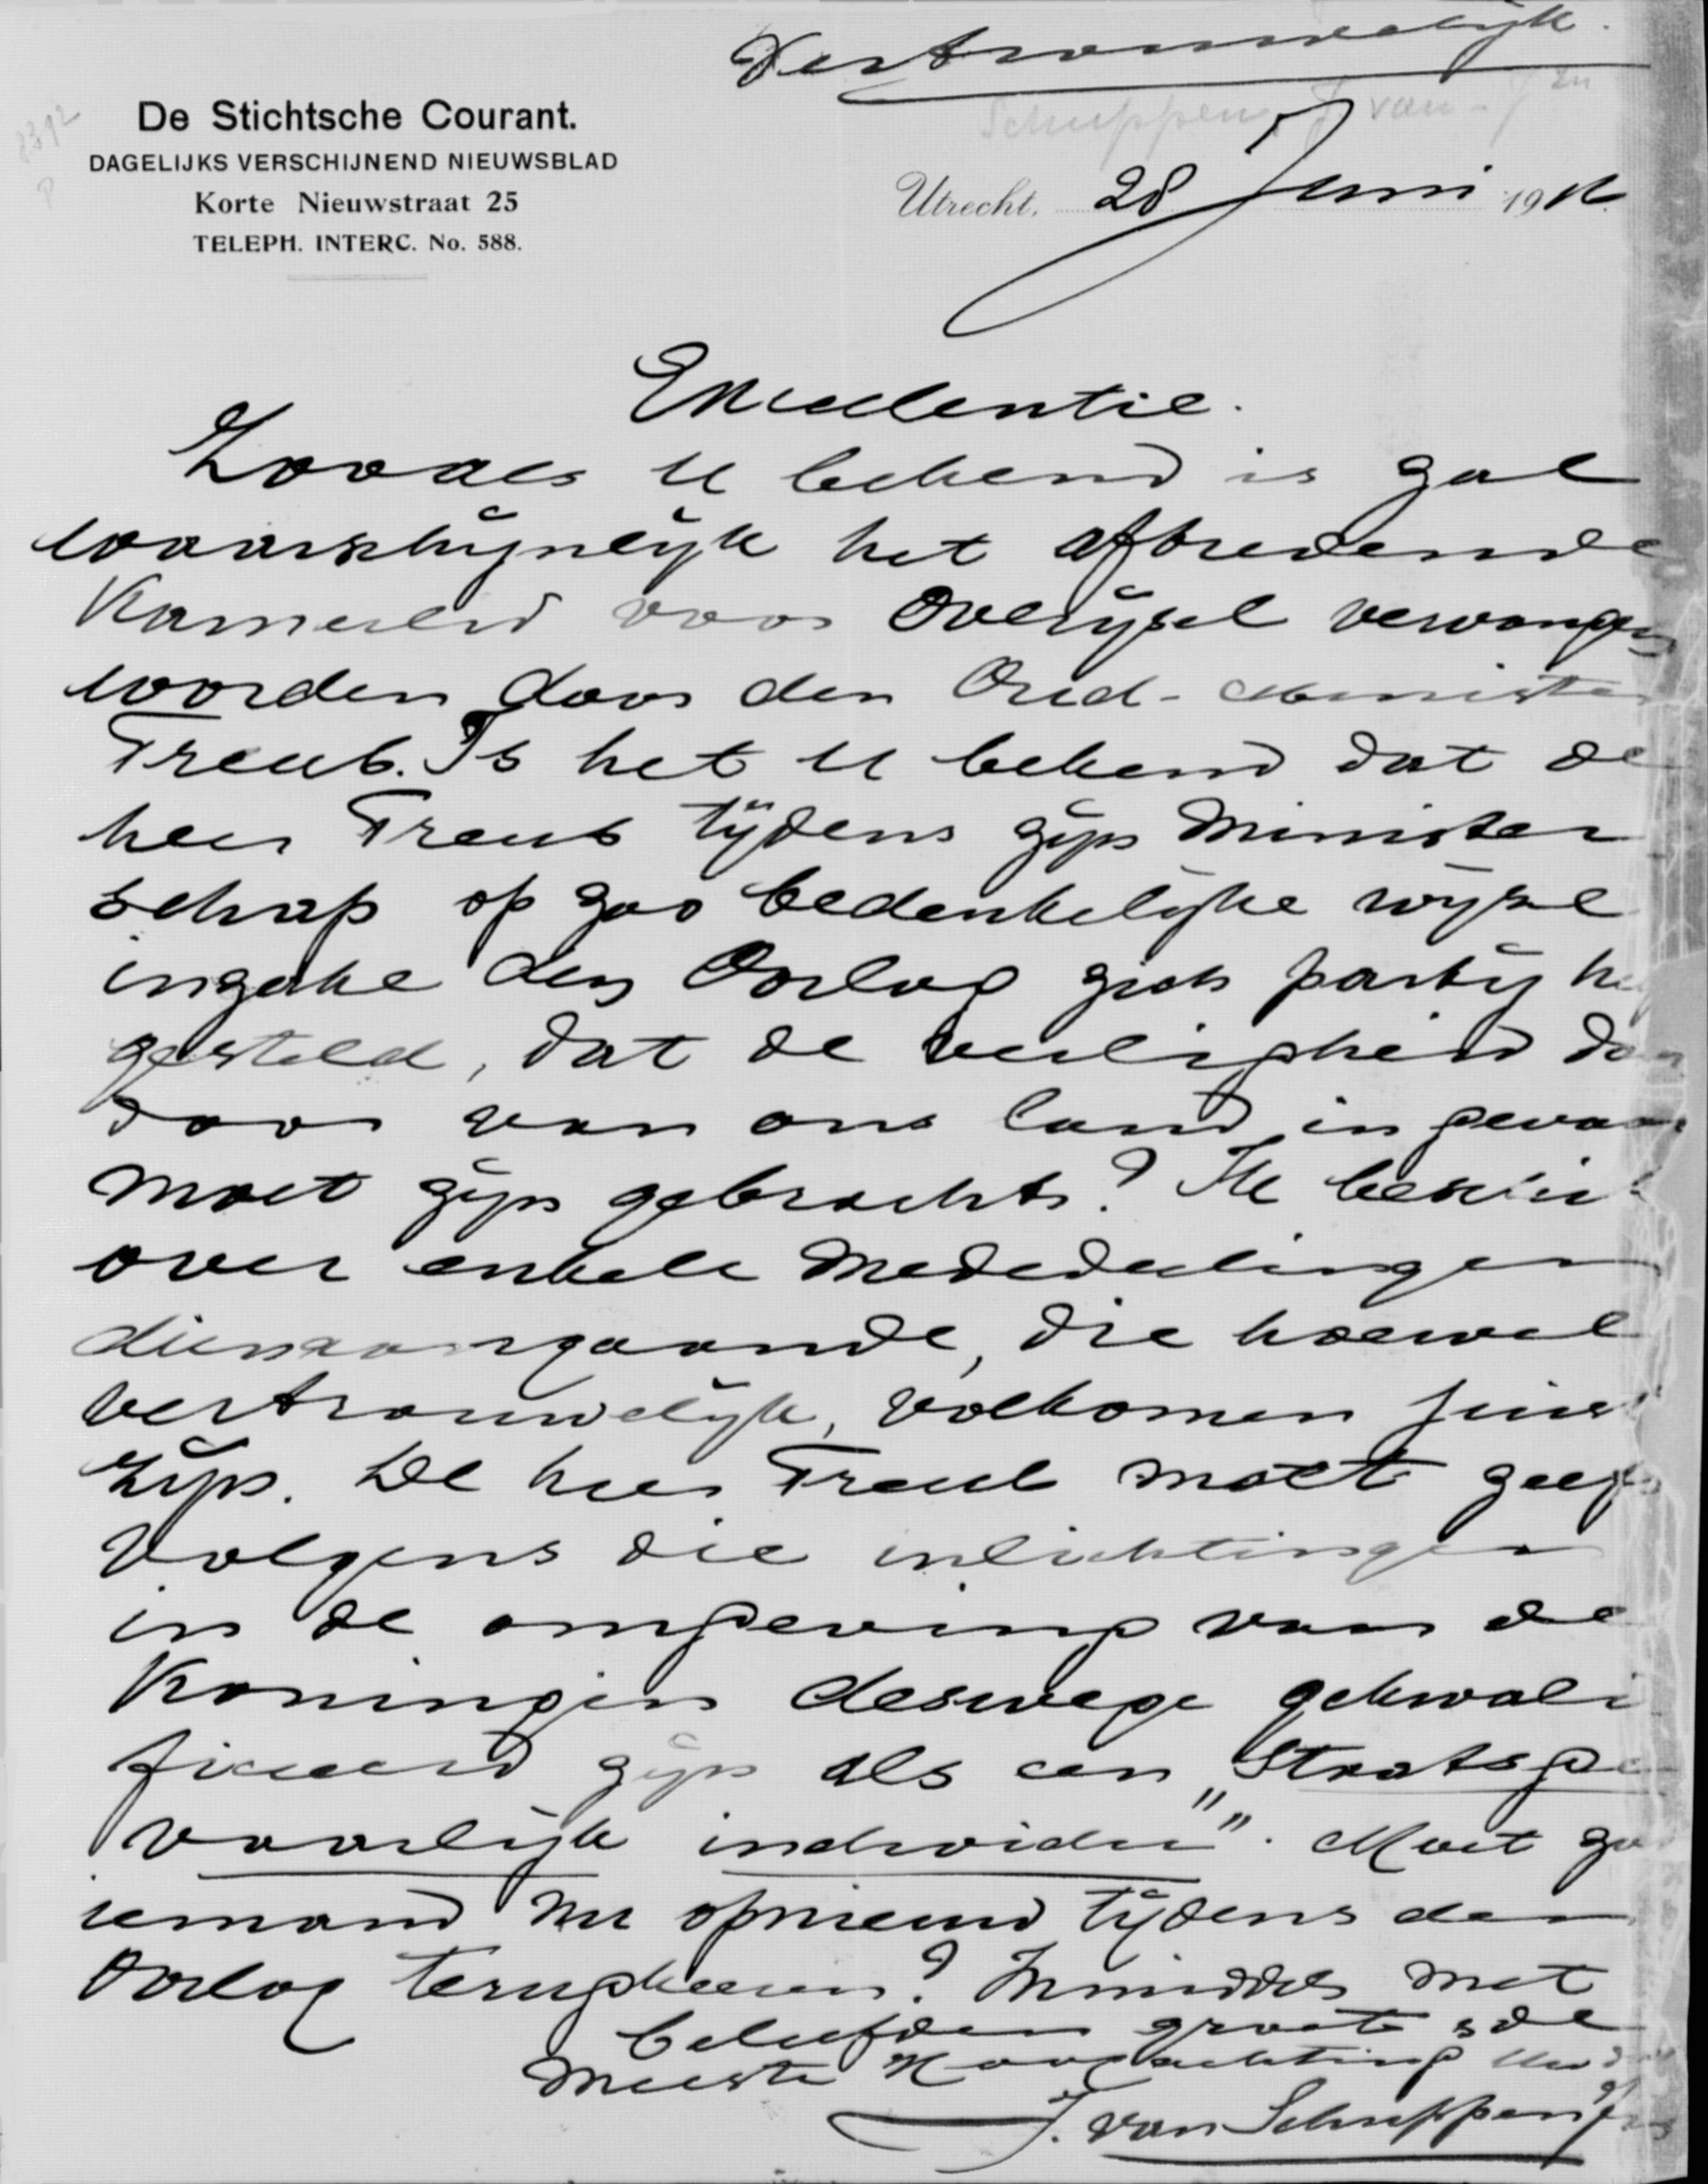 Vertrouwelijk.
Schuppen, J. van - Jzn
De Stichtsche Courant.
DAGELIJKS VERSCHIJNEND NIEUWSBLAD
Korte Nieuwstraat 25
TELEPH. INTERC. No. 588.
Utrecht, 28 Juni 1916
Excellentie.
Zooals U bekend is zal
waarschijnlijk het aftredende
Kamerlid voor Overijsel vervangen
worden door den Oud-Minister
Treub. Is het U bekend dat de
heer Treub tijdens zijn Minister
schap op zoo bedenkelijke wijze
inzake den Oorlog zich partij he
gesteld, dat de veiligheid daar
door van ons land in gevaar
moet zijn gebracht? Ik beschik
over enkele mededeelingen
dienaangaande, die hoewel
vertrouwelijk, volkomen juist
zijn. De heer Treub moet zelfs
volgens die inlichtingen
in de omgeving van de
Koningin deswege gekwali
ficeerd zijn als een „Staatsge
vaarlijk individu". Moet zoo
iemand nu opnieuw tijdens den
Oorlog terugkeeren? Inmiddels met
beleefden groet & de
meeste Hoogachting Uw
J. van Schuppen Jzn